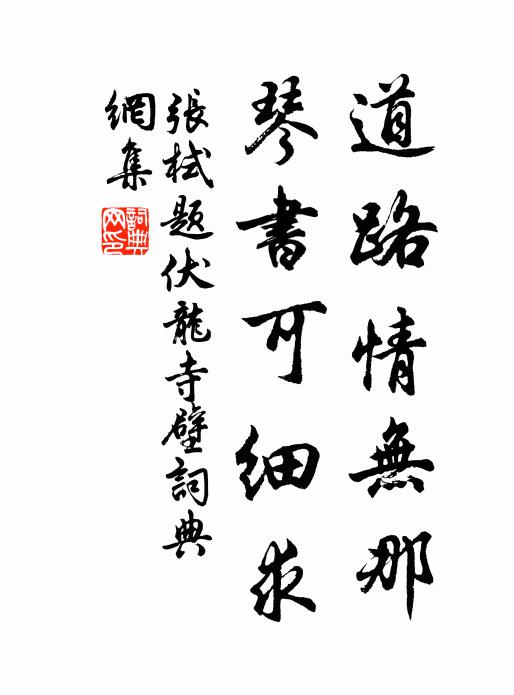 道路情無那
琴書可細求
張栻題伏龍寺壁詞典
網集
詞典网印